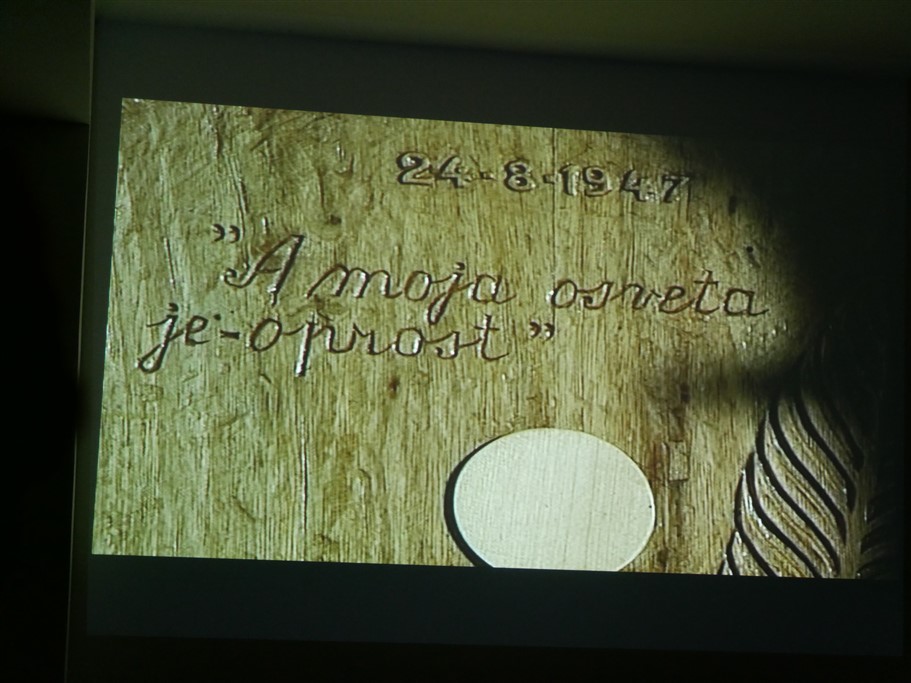 24-8-1947
”A moja osveta
je-oprost”